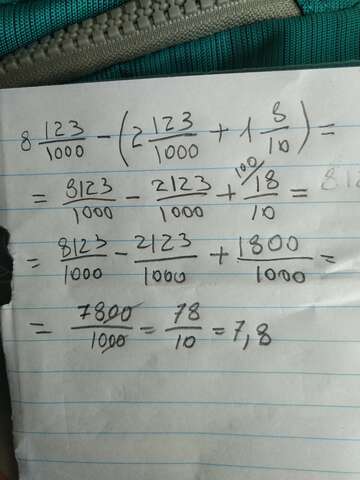 8 123/1000 - (2 123/1000 + 1 8/10) =
= 8123/1000 - 2123/1000 + 18/10 100/ =
= 8123/1000 - 2123/1000 + 1800/1000 =
= 7800/1000 = 78/10 = 7,8